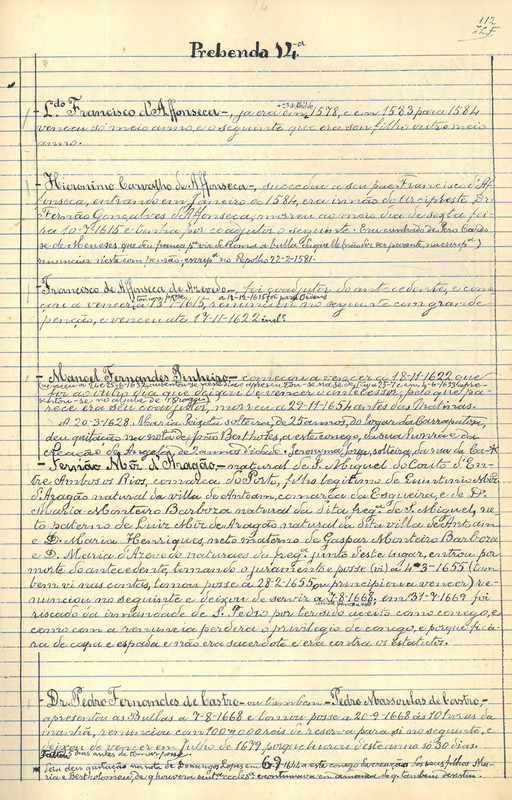 112
Prebenda 14.ª
- L.do Francisco d'Affonseca -, já era em 1578, e em 1583 para 1584
venceu só meio anno, e o seguinte que era seu filho outro meio
anno.
- Hieronimo Carvalho de Affonseca -, succedeu a seu pae Francisco d'Af-
fonseca, entrando em Janeiro de 1584, era irmão do Arcipreste Dr.
Fernão Gonçalves d'Affonseca, morreu ao meio dia de sexta fei-
ra 10-7-1615 e tinha por coadjutor o seguinte. Era cunhado de Pero Cardo-
so de Meneses que deu fiança p.ª vir de Roma a bulla
renunciar neste com pensão, 22-2-1581.
- Francisco de Affonseca de Azevedo -, foi coadjutor do antecedente, e come-
çou a vencer a 13-7-1615, renunciou no seguinte com grande
penção, e venceu até 17-11-1622 incl.e
- Manoel Fernandes Pinheiro - começou a vencer a 18-11-1622 que
foi ao outro dia que deixou de vencer o antecessor, pelo que pa-
rece era seu coadjutor, morreu a 29-11-1654 antes das Matinas.
A 20-3-1628 Maria Peixota solteira, de 25 annos, do logar da Carrapatosa,
deu quitação na nota de João Bertholes, a este conego, da sua honra e da
creação de Angela de 2 annos d'idade. Jeronyma Jorge, solteira, da rua da Ca-*
- Fernão Miz d'Aragão - natural de S. Miguel do Couto d'En-
tre Ambos os Rios, comarca do Porto, filho legitimo de Quintino Miz
d'Aragão natural da villa de Antoam, comarca da Esgueira, e de D.
Maria Monteiro Barboza natural da dita freg.ª de S. Miguel, ne-
to paterno de Luiz Miz de Aragão natural da dita villa de Antoam
e D. Maria Henriques, neto materno de Gaspar Monteiro Barboza
e D. Maria d'Azevedo naturaes da freg.ª junto deste lugar, entrou por
morte do antecedente, tomando o juramento e posse (vi) a 1-3-1655 (tam-
bem vi nas contas, tomou posse a 28-2-1655 ou principiou a vencer) re-
nunciou no seguinte e deixou de servir a 7-8-1668, em 31-7-1669 foi
riscado da irmandade de S. Pedro por ter sido aceito como conego, e
como com a renuncia perdera o privilegio de conego, e porque ficá-
ra de capa e espada e não era sacerdote e era contra os estatutos.
- Dr. Pedro Fernandes de Castro - ou tambem - Pedro Massoulas de Castro, -
apresentou as Bullas a 7-8-1668 e tomou posse a 20-9-1668 ás 10 horas da
manhã, renunciou com 100#000 reis de reserva para si no seguinte, e
deixou de vencer em Julho de 1679 porque lucrou deste anno só 30 dias.
Faltou dias antes de tomar posse.
* deu quitação na nota de Domingos Lopes em 6-9- a este conego da creação dos seus filhos Ma-
ria e Bertholomeu, de q houvera sent.ª eccles.ª